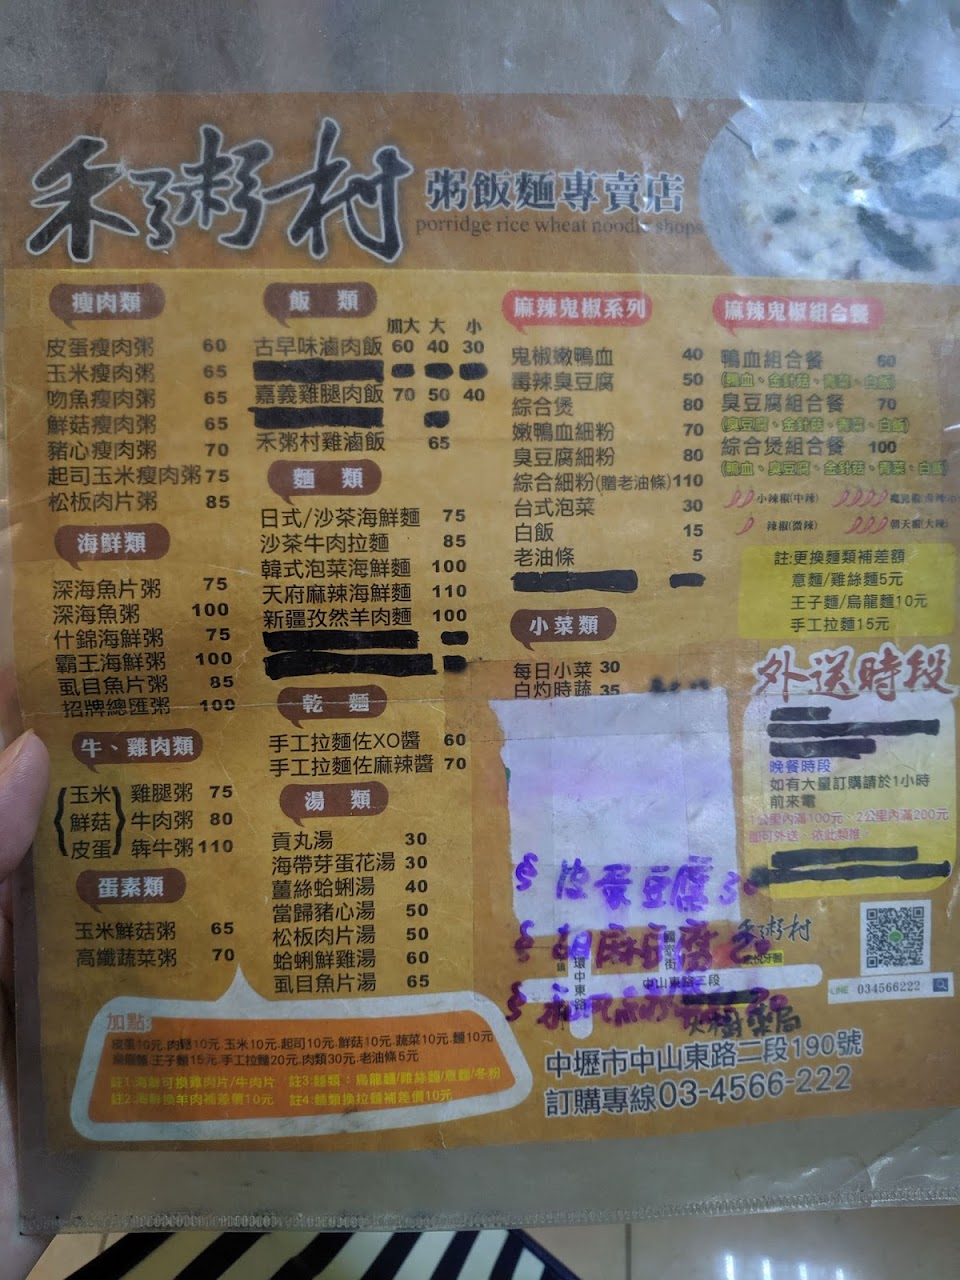 禾粥村
粥飯麵專賣店
porridge rice wheat noodle shops
瘦肉類
皮蛋瘦肉粥 60
玉米瘦肉粥 65
吻魚瘦肉粥 65
鮮菇瘦肉粥 65
豬心瘦肉粥 70
起司玉米瘦肉粥 75
松板肉片粥 85
海鮮類
深海魚片粥 75
深海魚粥 100
什錦海鮮粥 75
霸王海鮮粥 100
虱目魚片粥 85
招牌總匯粥 100
牛、雞肉類
玉米 雞腿粥 75
鮮菇 牛肉粥 80
皮蛋 犇牛粥 110
蛋素類
玉米鮮菇粥 65
高纖蔬菜粥 70
飯 類
加大 大 小
古早味滷肉飯 60 40 30
嘉義雞腿肉飯 70 50 40
禾粥村雞滷飯 65
麵 類
日式/沙茶海鮮麵 75
沙茶牛肉拉麵 85
韓式泡菜海鮮麵 100
天府麻辣海鮮麵 110
新疆孜然羊肉麵 100
乾 麵
手工拉麵佐XO醬 60
手工拉麵佐麻辣醬 70
湯 類
貢丸湯 30
海帶芽蛋花湯 30
薑絲蛤蜊湯 40
當歸豬心湯 50
松板肉片湯 50
蛤蜊鮮雞湯 60
虱目魚片湯 65
麻辣鬼椒系列
鬼椒嫩鴨血 40
毒辣臭豆腐 50
綜合煲 80
嫩鴨血細粉 70
臭豆腐細粉 80
綜合細粉(贈老油條) 110
台式泡菜 30
白飯 15
老油條 5
小菜類
每日小菜 30
白灼時蔬 35
皮蛋豆腐
胡麻豆腐
麻辣鬼椒組合餐
鴨血組合餐 60
(鴨血、金針菇、青菜、白飯)
臭豆腐組合餐 70
(臭豆腐、金針菇、青菜、白飯)
綜合煲組合餐 100
(鴨血、臭豆腐、金針菇、青菜、白飯)
小辣椒(中辣)
辣椒(微辣) 朝天椒(大辣)
註:更換麵類補差額
意麵/雞絲麵5元
王子麵/烏龍麵10元
手工拉麵15元
外送時段
晚餐時段
如有大量訂購請於1小時
前來電
1公里內滿100元、2公里內滿200元
即可外送、依此類推。
禾粥村
環中東路
中山東路二段
LINE 034566222
中壢市中山東路二段190號
訂購專線03-4566-222
加點:
皮蛋10元.肉鬆10元.玉米10元.起司10元.鮮菇10元.蔬菜10元.麵10元
王子麵15元.手工拉麵20元.肉類30元.老油條5元
註1:海鮮可換雞肉片/牛肉片 註3:麵類：烏龍麵/雞絲麵/意麵/冬粉
註2:海鮮換羊肉補差價10元 註4:麵類換拉麵補差價10元